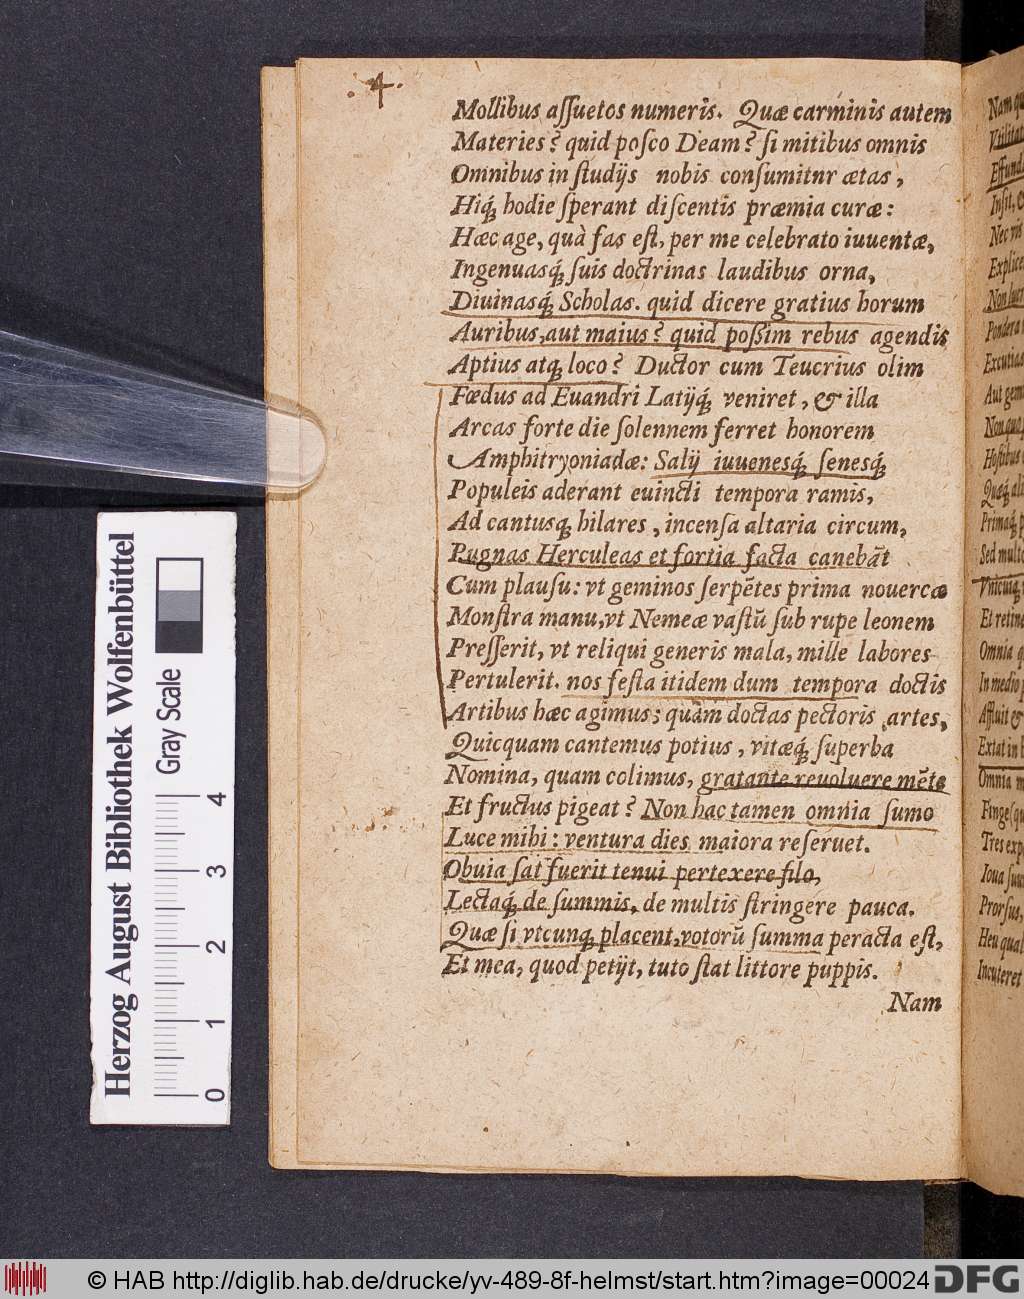 . 4 .
Mollibus aſſuetos numeris. Quæ carminis autem
Materies? quid poſco Deam? ſi mitibus omnis
Omnibus in ſtudijs nobis conſumitnr ætas,
Hiq́; hodie ſperant diſcentis præmia curæ:
Hæc age, quà fas eſt, per me celebrato iuuentæ,
Ingenuasq́; ſuis doctrinas laudibus orna,
Diuinasq́; Scholas. quid dicere gratius horum
Auribus, aut maius? quid poßim rebus agendis
Aptius atq; loco? Ductor cum Teucrius olim
Fœdus ad Euandri Latijq́; veniret, & illa
Arcas forte die ſolennem ferret honorem
Amphitryoniadæ: Salij iuuenesq́; ſenesq́;
Populeis aderant euincti tempora ramis,
Ad cantusq; hilares, incenſa altaria circum,
Pugnas Herculeas et fortia facta canebāt
Cum plauſu: vt geminos ſerpētes prima nouercæ
Monſtra manu, vt Nemeæ vaſtū ſub rupe leonem
Preſſerit, vt reliqui generis mala, mille labores
Pertulerit. nos feſta itidem dum tempora doctis
Artibus hæc agimus; quàm doctas pectoris artes,
Quicquam cantemus potius, vitæq́; ſuperba
Nomina, quam colimus, gratante reuoluere mēte
Et fructus pigeat? Non hac tamen omnia ſumo
Luce mihi: ventura dies maiora reſeruet.
Obuia ſat fuerit tenui pertexere filo,
Lectaq́; de ſummis, de multis ſtringere pauca.
Quæ ſi vtcunq; placent, votorū ſumma peracta eſt,
Et mea, quod petijt, tuto ſtat littore puppis.
Nam
Nam
Effund
Inſit,
Explice
Pondera
Excutias
Aut gem
Hoſtibus
Sed multo
Omnia
In medio
Affluit &
Extat in
Omnia
Tres exp
Prorſus,
Heu qua
Incuteret
Herzog August Bibliothek Wolfenbüttel
Gray Scale
0 1 2 3 4
© HAB http://diglib.hab.de/drucke/yv-489-8f-helmst/start.htm?image=00024
DFG